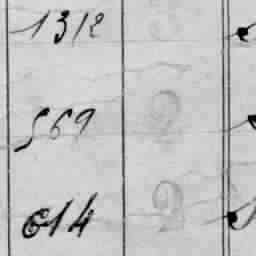 1312
569 2
614 2